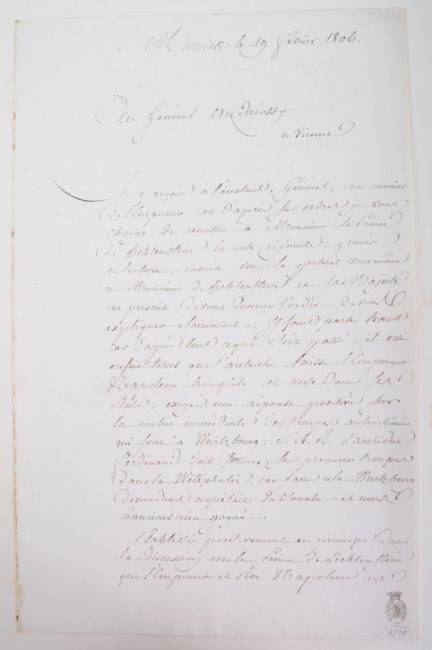 Munich, le 19 février 1806.
Au Général Andréossy
a Vienne
Je reçois à l'instant, Général, un courrier
de l'Empereur et d'après ses ordres je vous
charge de remettre à Monsieur le Prince
de Lichtenstein la note ci jointe;
lecture, ensuite vous la
a Monsieur de Lichtenstein et sa Majesté
me prescrit de vous donner l'ordre de vous
expliquer clairement; il faut parler haut,
car d'après tout ce qui s'est passé il est
enfin tems que l'autriche laisse l'Empereur
Napoléon tranquile et reste dans ses
États; exigés une réponse positive sur
la rentrée immédiate des troupes autrichiennes
qui sont à Wurtzbourg; S. A. R. L'archiduc
Ferdinand doit former ses premières troupes
dans la Westphalie, car sans cela Wurtzbourg
deviendrait ce qu'était la Souabe et nous
n'aurions rien gagné.
Etablissés positivement en principe dans
la discussion avec le Prince de Lichtenstein
que l'Empereur et Roi Napoléon ne